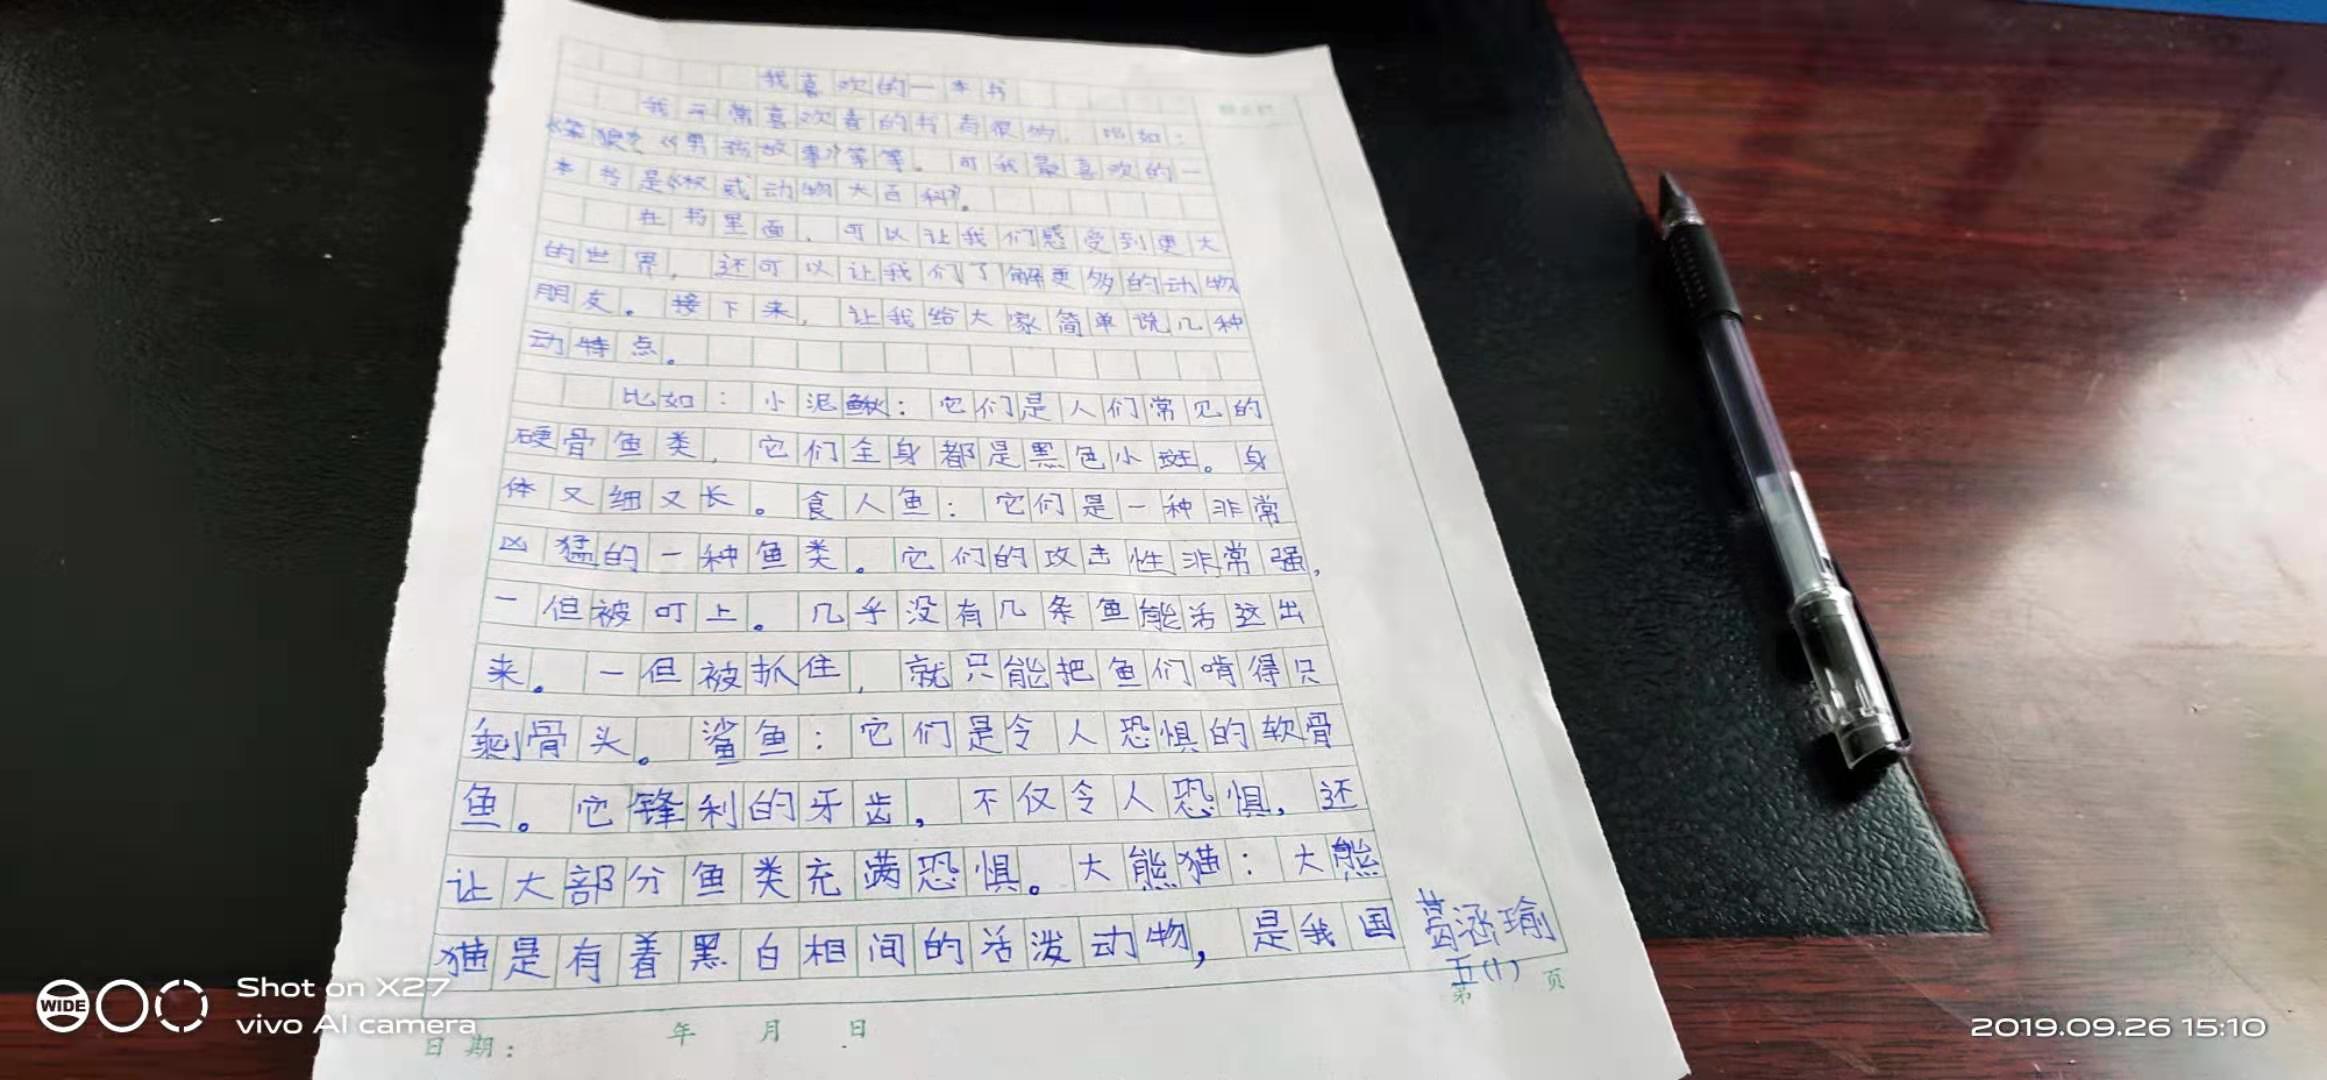 我喜欢的一本书
我平常喜欢看的书有很多，比如：
《笨狼》《男孩故事》等等。可我最喜欢的一
本书是《权威动物大百科》。
在书里面，可以让我们感受到更大
的世界，还可以让我们了解更多的动物
朋友。接下来，让我给大家简单说几种
动特点。
比如：小泥鳅：它们是人们常见的
硬骨鱼类，它们全身都是黑色小斑。身
体又细又长。食人鱼：它们是一种非常
凶猛的一种鱼类。它们的攻击性非常强，
一但被叮上。几乎没有几条鱼能活这出
来。一但被抓住，就只能把鱼们啃得只
剩骨头。鲨鱼：它们是令人恐惧的软骨
鱼。它锋利的牙齿，不仅令人恐惧，还
让大部分鱼类充满恐惧。大熊猫：大熊
猫是有着黑白相间的活泼动物，是我国
葛涵瑜
五(1)
第 页
日期： 年 月 日
WIDE
Shot on X27
vivo AI camera
2019.09.26 15:10